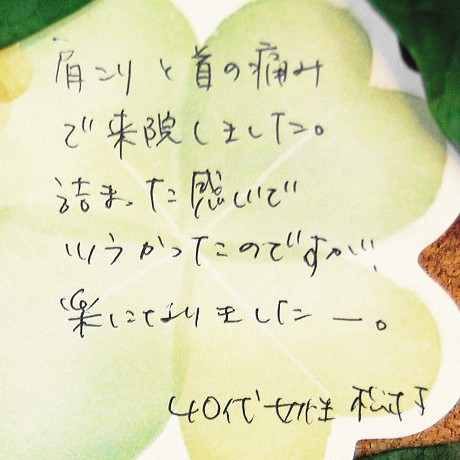 肩こりと首の痛み
で来院しました。
詰まった感じで
ツラかったのですが、
楽になりましたー。
40代女性 松村